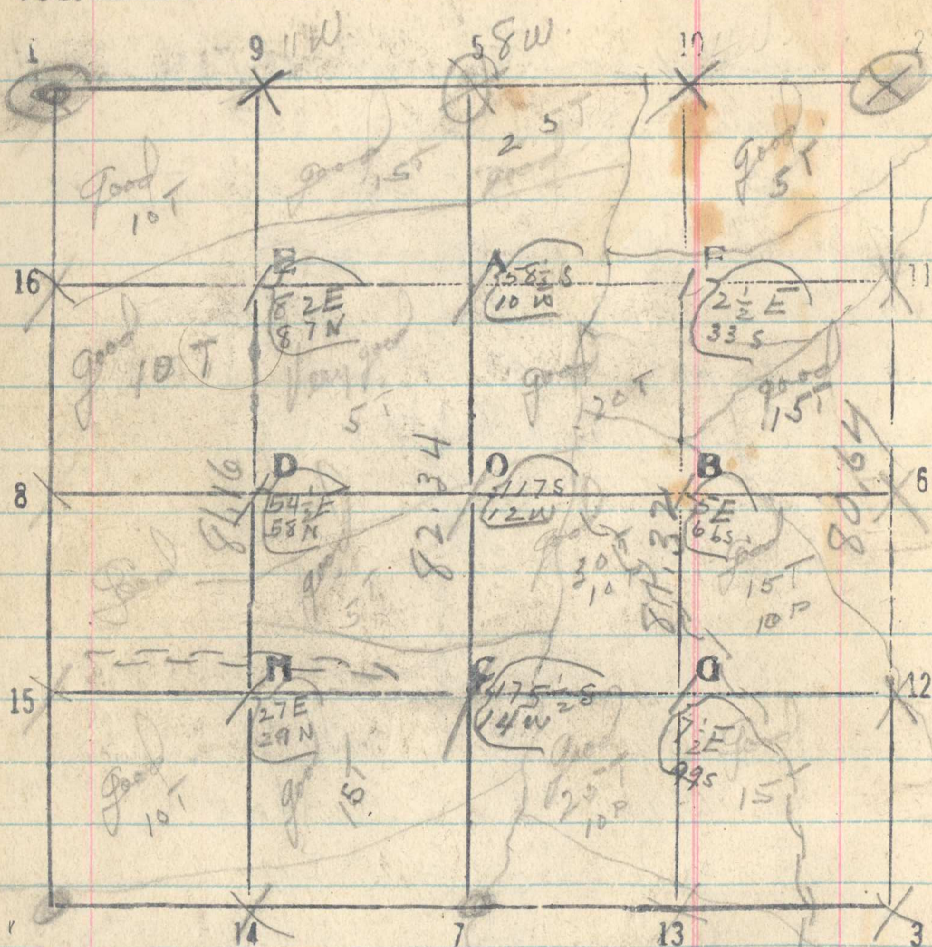 1 9 11 W. 5 8 W 10 2
good 10 T
good 15 T
25 T good
good 5 T
16 E A F 11
2 E
8 7 N
58 1/2 S
10 W
2 1/2 E
33 S
good 10 T
Very good 5 T
good 20 T
good 15 T
81,16 82.34 81,32 80.64
8 D O B 6
54 1/2 E
58 N
117 S
12 W
5 E
66 S
good
good 5 T
good 30 T
10
good 15 T
10 P
15 H C G 12
27 E
29 N
175 1/2 S
14 W
7 1/2 E
99 S
good 10 T
good 15 T
good 25 T
10 P
good 15
14 7 13 3